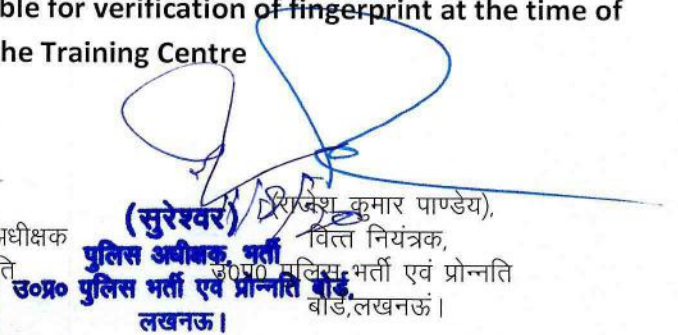 ble for verification of fingerprint at the time of
he Training Centre
(सुरेश्वर)
पुलिस अधीक्षक, भर्ती
उ०प्र० पुलिस भर्ती एवं प्रोन्नति बोर्ड,
लखनऊ।
(राजेश कुमार पाण्डेय),
वित्त नियंत्रक,
उ०प्र० पुलिस भर्ती एवं प्रोन्नति
बोर्ड,लखनऊं।
धीक्षक
ति